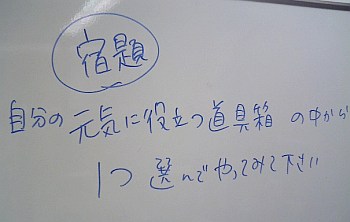 宿題
自分の元気に役立つ道具箱の中から
1つ選んでやってみて下さい